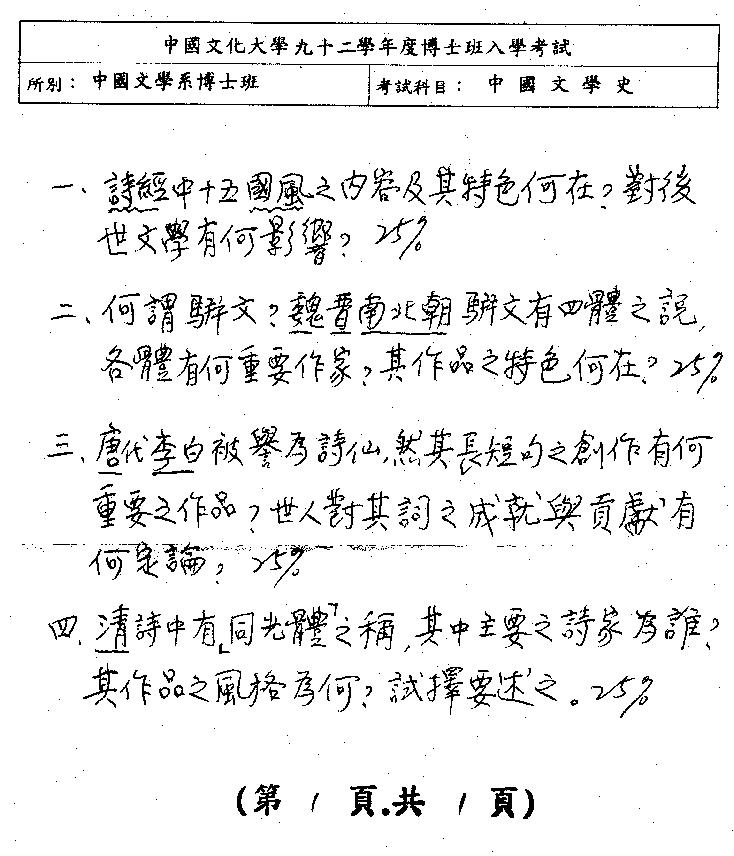 中國文化大學九十二學年度博士班入學考試
所別：中國文學系博士班 考試科目：中國文學史
一、詩經中十五國風之內容及其特色何在？對後
世文學有何影響？25%
二、何謂駢文？魏晉南北朝駢文有四體之說，
各體有何重要作家？其作品之特色何在？25%
三、唐代李白被譽為詩仙，然其長短句之創作有何
重要之作品？世人對其詞之成就與貢獻有
何定論？25%
四、清詩中有「同光體」之稱，其中主要之詩家為誰？
其作品之風格為何？試擇要述之。25%
(第 1 頁．共 1 頁)